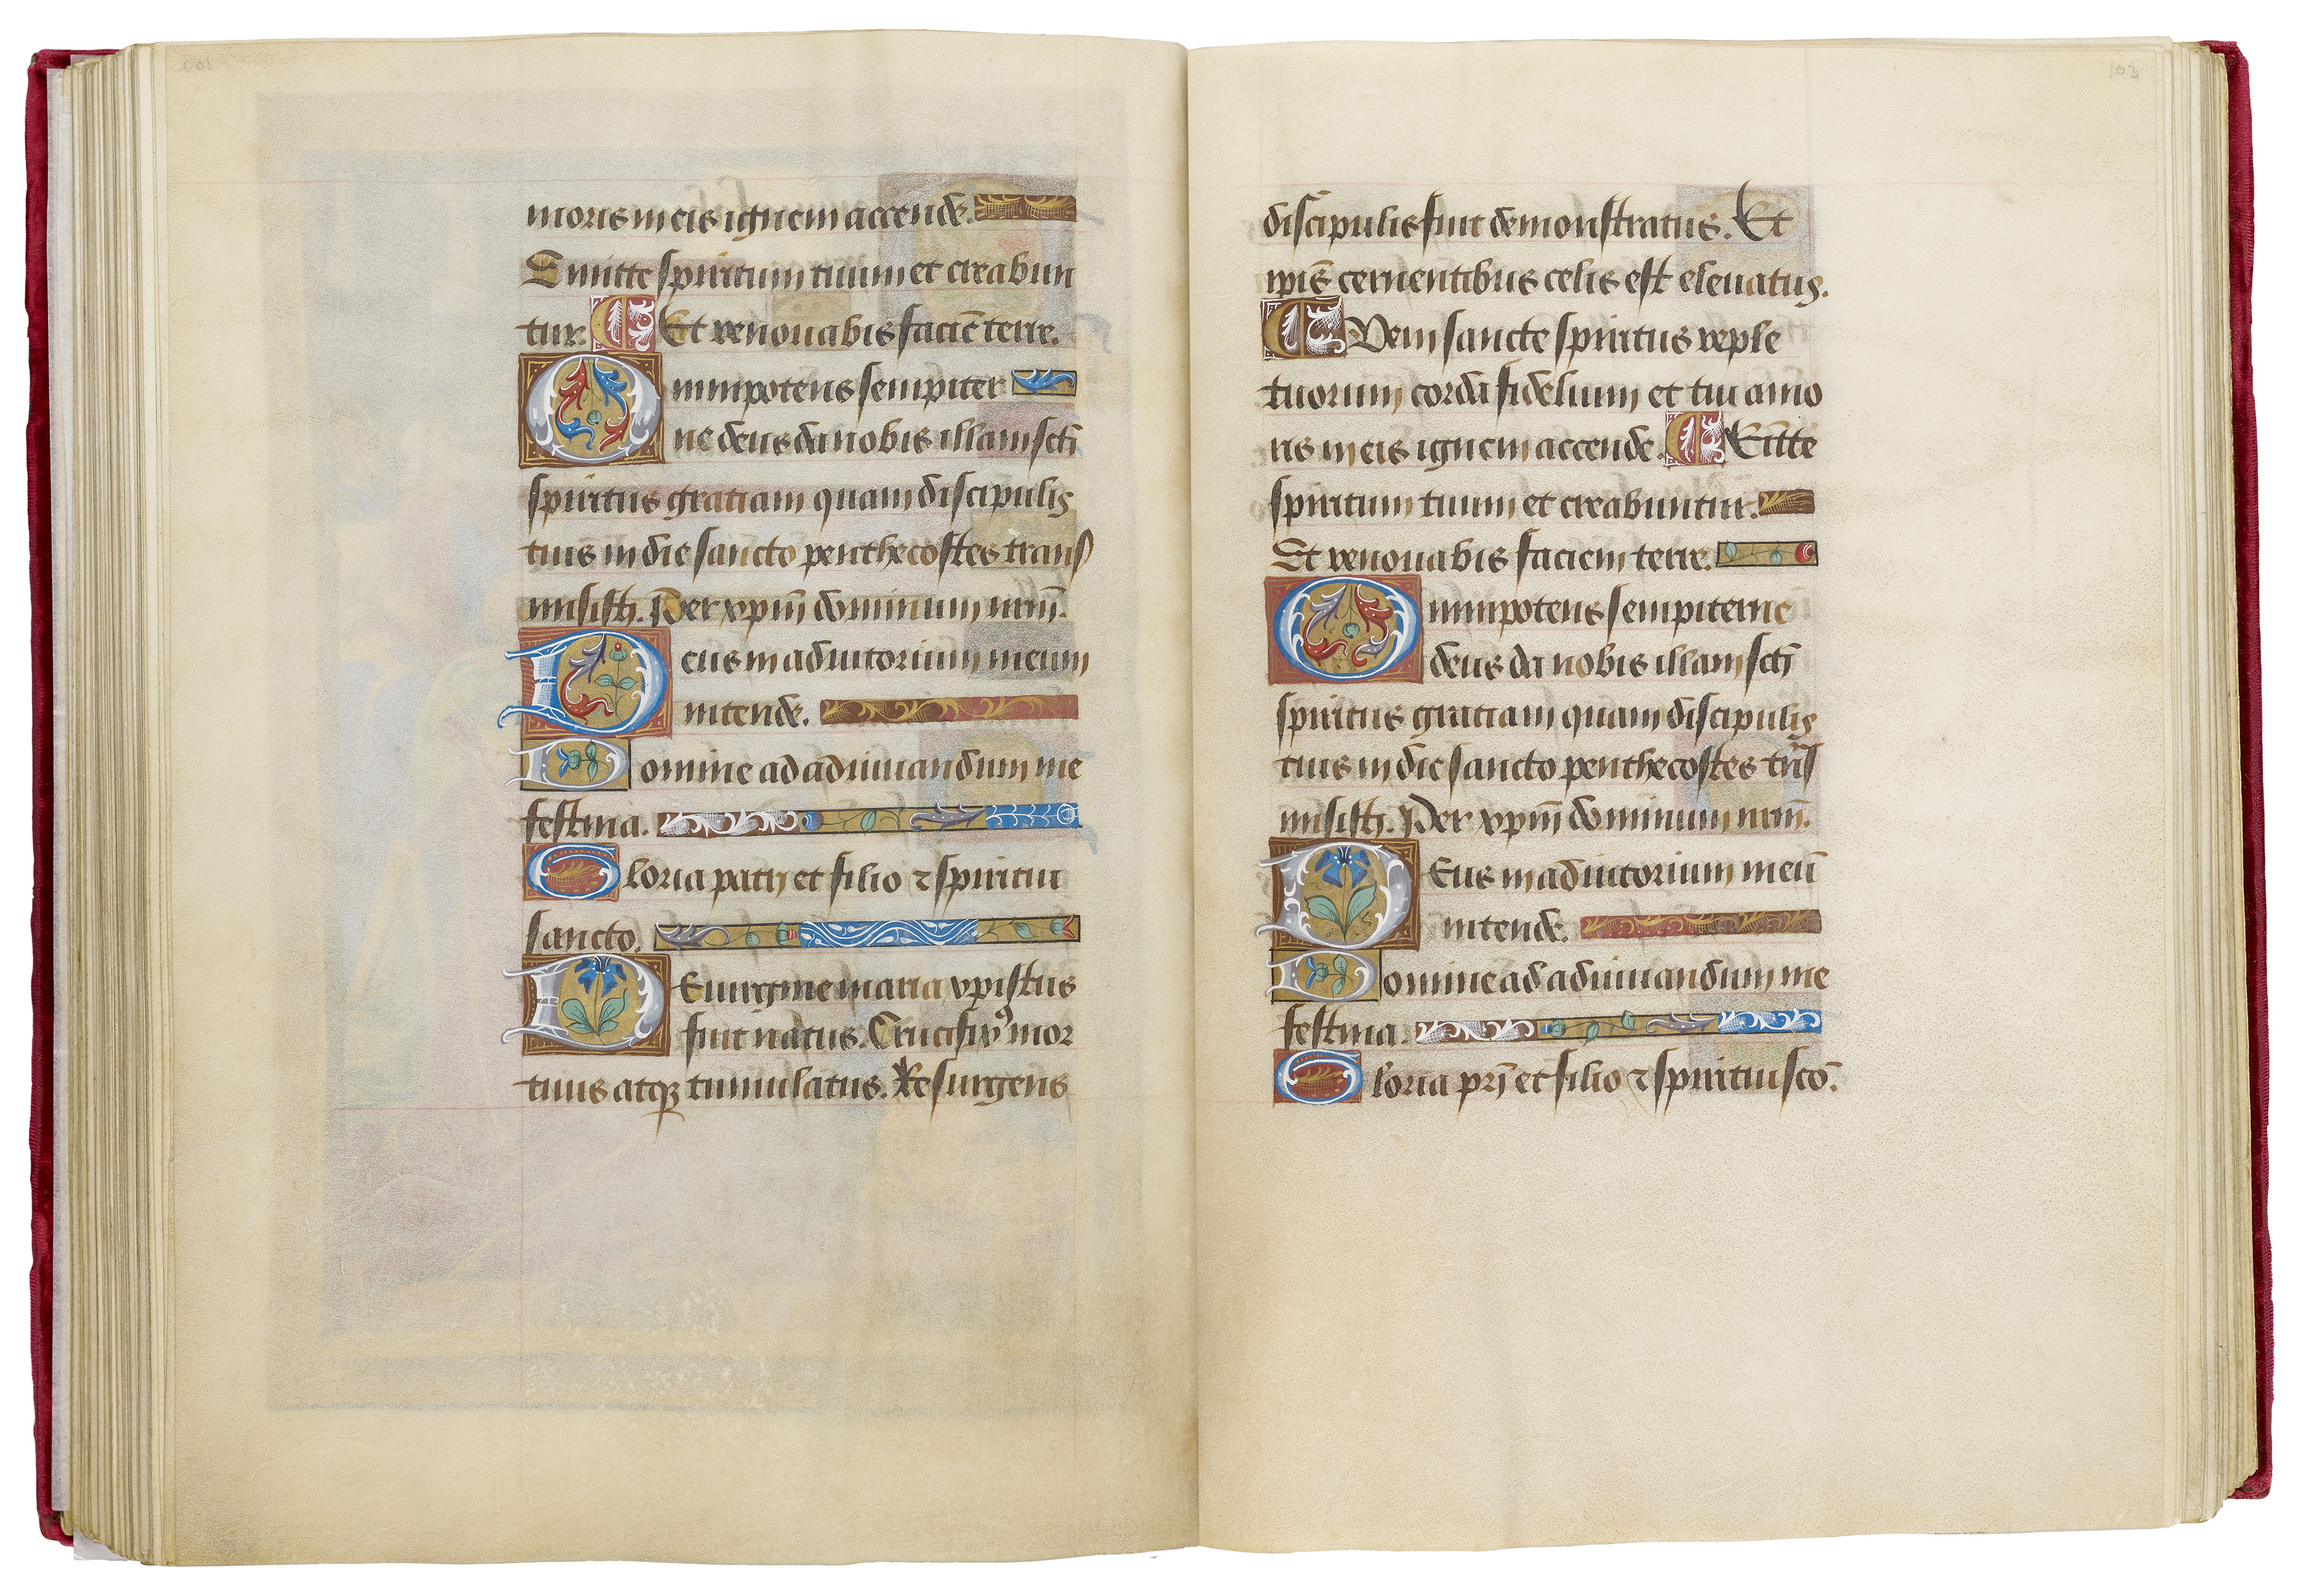 moris in eis ignem accende.
Emitte spiritum tuum et creabun
tur. Et renouabis faciē terre.
Omnipotens sempiter
ne deus da nobis illam scti
spiritus gratiam quam discipulis
tuis in die sancto penthecostes trans
misisti. Per xpm̄ dominum nrm̄.
Deus in adiutorium meum
intende.
Domine ad adiuuandum me
festina.
Gloria patri et filio ⁊ spiritui
sancto.
De uirgine maria xpistus
fuit natus. Crucifixꝰ mor
tuus atqꝫ tumulatus. Resurgens
discipulis fuit demonstratus. Et
ipīs cernentibus celis est eleuatus.
Veni sancte spiritus reple
tuorum corda fidelium et tui amo
ris in eis ignem accende. Emitte
spiritum tuum et creabuntur.
Et renouabis faciem terre.
Omnipotens sempiterne
deus da nobis illam scti
spiritus gratiam quam discipulis
tuis in die sancto penthecostes trās
misisti. Per xpm̄ dominum nrm̄.
Deus in adiutorium meū
intende.
Domine ad adiuuandum me
festina.
Gloria pri et filio ⁊ spiritui scō.
103